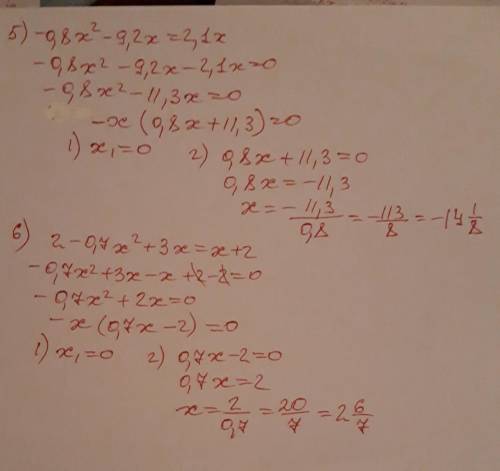 5) -0,8x² - 9,2x = 2,1x
-0,8x² - 9,2x - 2,1x = 0
-0,8x² - 11,3x = 0
-x (0,8x + 11,3) = 0
1) x₁ = 0 2) 0,8x + 11,3 = 0
0,8x = -11,3
x = -11,3/0,8 = -113/8 = -14 1/8
6) 2 - 0,7x² + 3x = x + 2
-0,7x² + 3x - x + 2 - 2 = 0
-0,7x² + 2x = 0
-x (0,7x - 2) = 0
1) x₁ = 0 2) 0,7x - 2 = 0
0,7x = 2
x = 2/0,7 = 20/7 = 2 6/7